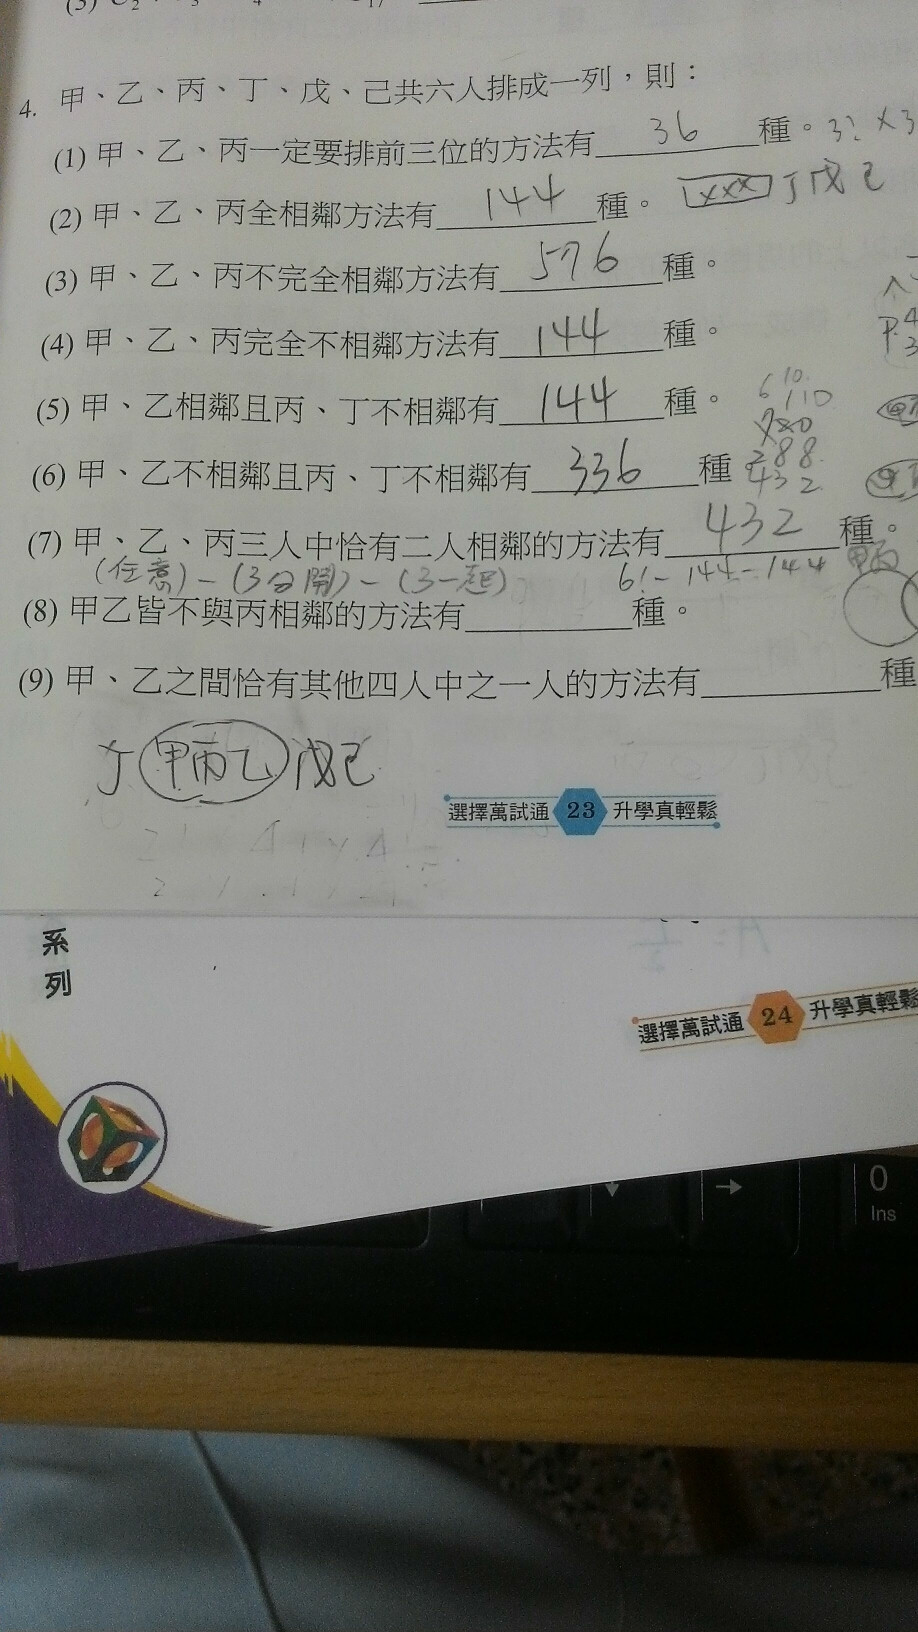 4. 甲、乙、丙、丁、戊、己共六人排成一列，則：
(1) 甲、乙、丙一定要排前三位的方法有 36 種。 3! × 3
(2) 甲、乙、丙全相鄰方法有 144 種。 ××× 丁戊己
(3) 甲、乙、丙不完全相鄰方法有 576 種。
(4) 甲、乙、丙完全不相鄰方法有 144 種。
(5) 甲、乙相鄰且丙、丁不相鄰有 144 種。
(6) 甲、乙不相鄰且丙、丁不相鄰有 336 種
288
432
(7) 甲、乙、丙三人中恰有二人相鄰的方法有 432 種。
(任意)－(3分開)－(3一起) 6!－144－144
(8) 甲乙皆不與丙相鄰的方法有 種。
(9) 甲、乙之間恰有其他四人中之一人的方法有 種
丁 甲丙乙 戊己
選擇萬試通 23 升學真輕鬆
系列
選擇萬試通 24 升學真輕鬆
0
Ins